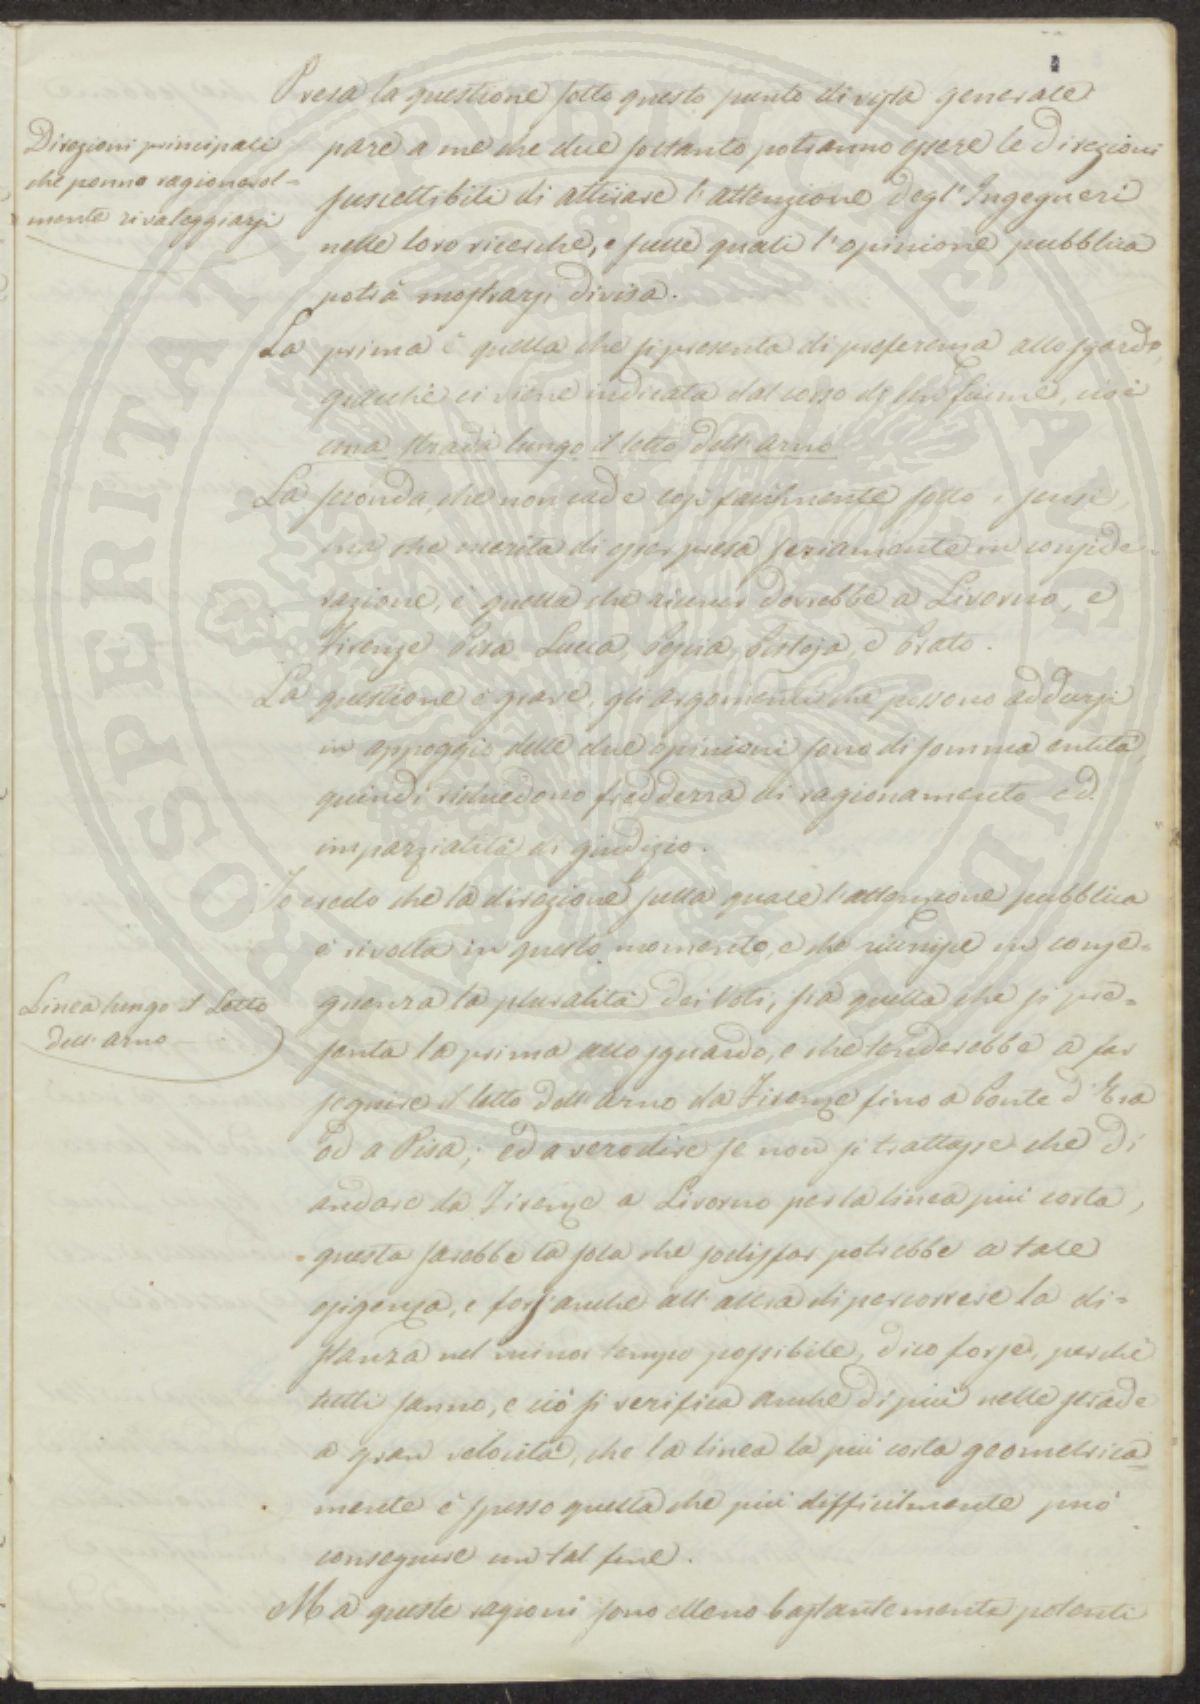 Presa la questione sotto questo punto di vista generale
Direzioni principali
che ponno ragionevol=
mente rivaleggiarsi
pare a me che due soltanto potranno essere le Direzioni
suscettibili di attirare l'attenzione degl'Ingegneri
nelle loro ricerche, e sulle quali l'opinione pubblica
potrà mostrarsi divisa.
La prima è quella che si presenta di preferenza allo sguardo,
giacchè ci viene indicata dal corso di un fiume, cioè
una strada lungo il letto dell'arno
La seconda, che non cade così facilmente sotto i sensi,
ma che merita di esser presa seriamente in conside=
razione, è quella che riunir dovrebbe a Livorno, e
Firenze Pisa Lucca, Pescia, Pistoja, e Prato.
La questione è grave, gli argomenti che possono addursi
in appoggio delle due opinioni sono di somma entità,
quindi richiedono freddezza di ragionamento ed
imparzialità di giudizio.
Io credo che la direzione sulla quale l'attenzione pubblica
è rivolta in questo momento, e che riunisce in conse=
guenza la pluralità dei Voti, sia quella che si pre=
Linea lungo il Letto
dell'arno
senta la prima allo sguardo, e che tenderebbe a far
seguire il letto dell'arno da Firenze fino a Ponte d'Era
od a Pisa; ed a vero dire se non si trattasse che di
andare da Firenze a Livorno per la linea più corta,
questa sarebbe la sola che sodisfar potrebbe a tale
esigenza, e fors'anche all'altra di percorrere la di=
stanza nel minor tempo possibile, dico forse, perchè
tutti sanno, e ciò si verifica anche di più nelle strade
a gran velocità, che la linea la più corta geometrica
mente è spesso quella che più difficilmente può
conseguire un tal fine.
Ma queste ragioni sono elleno bastantemente potenti